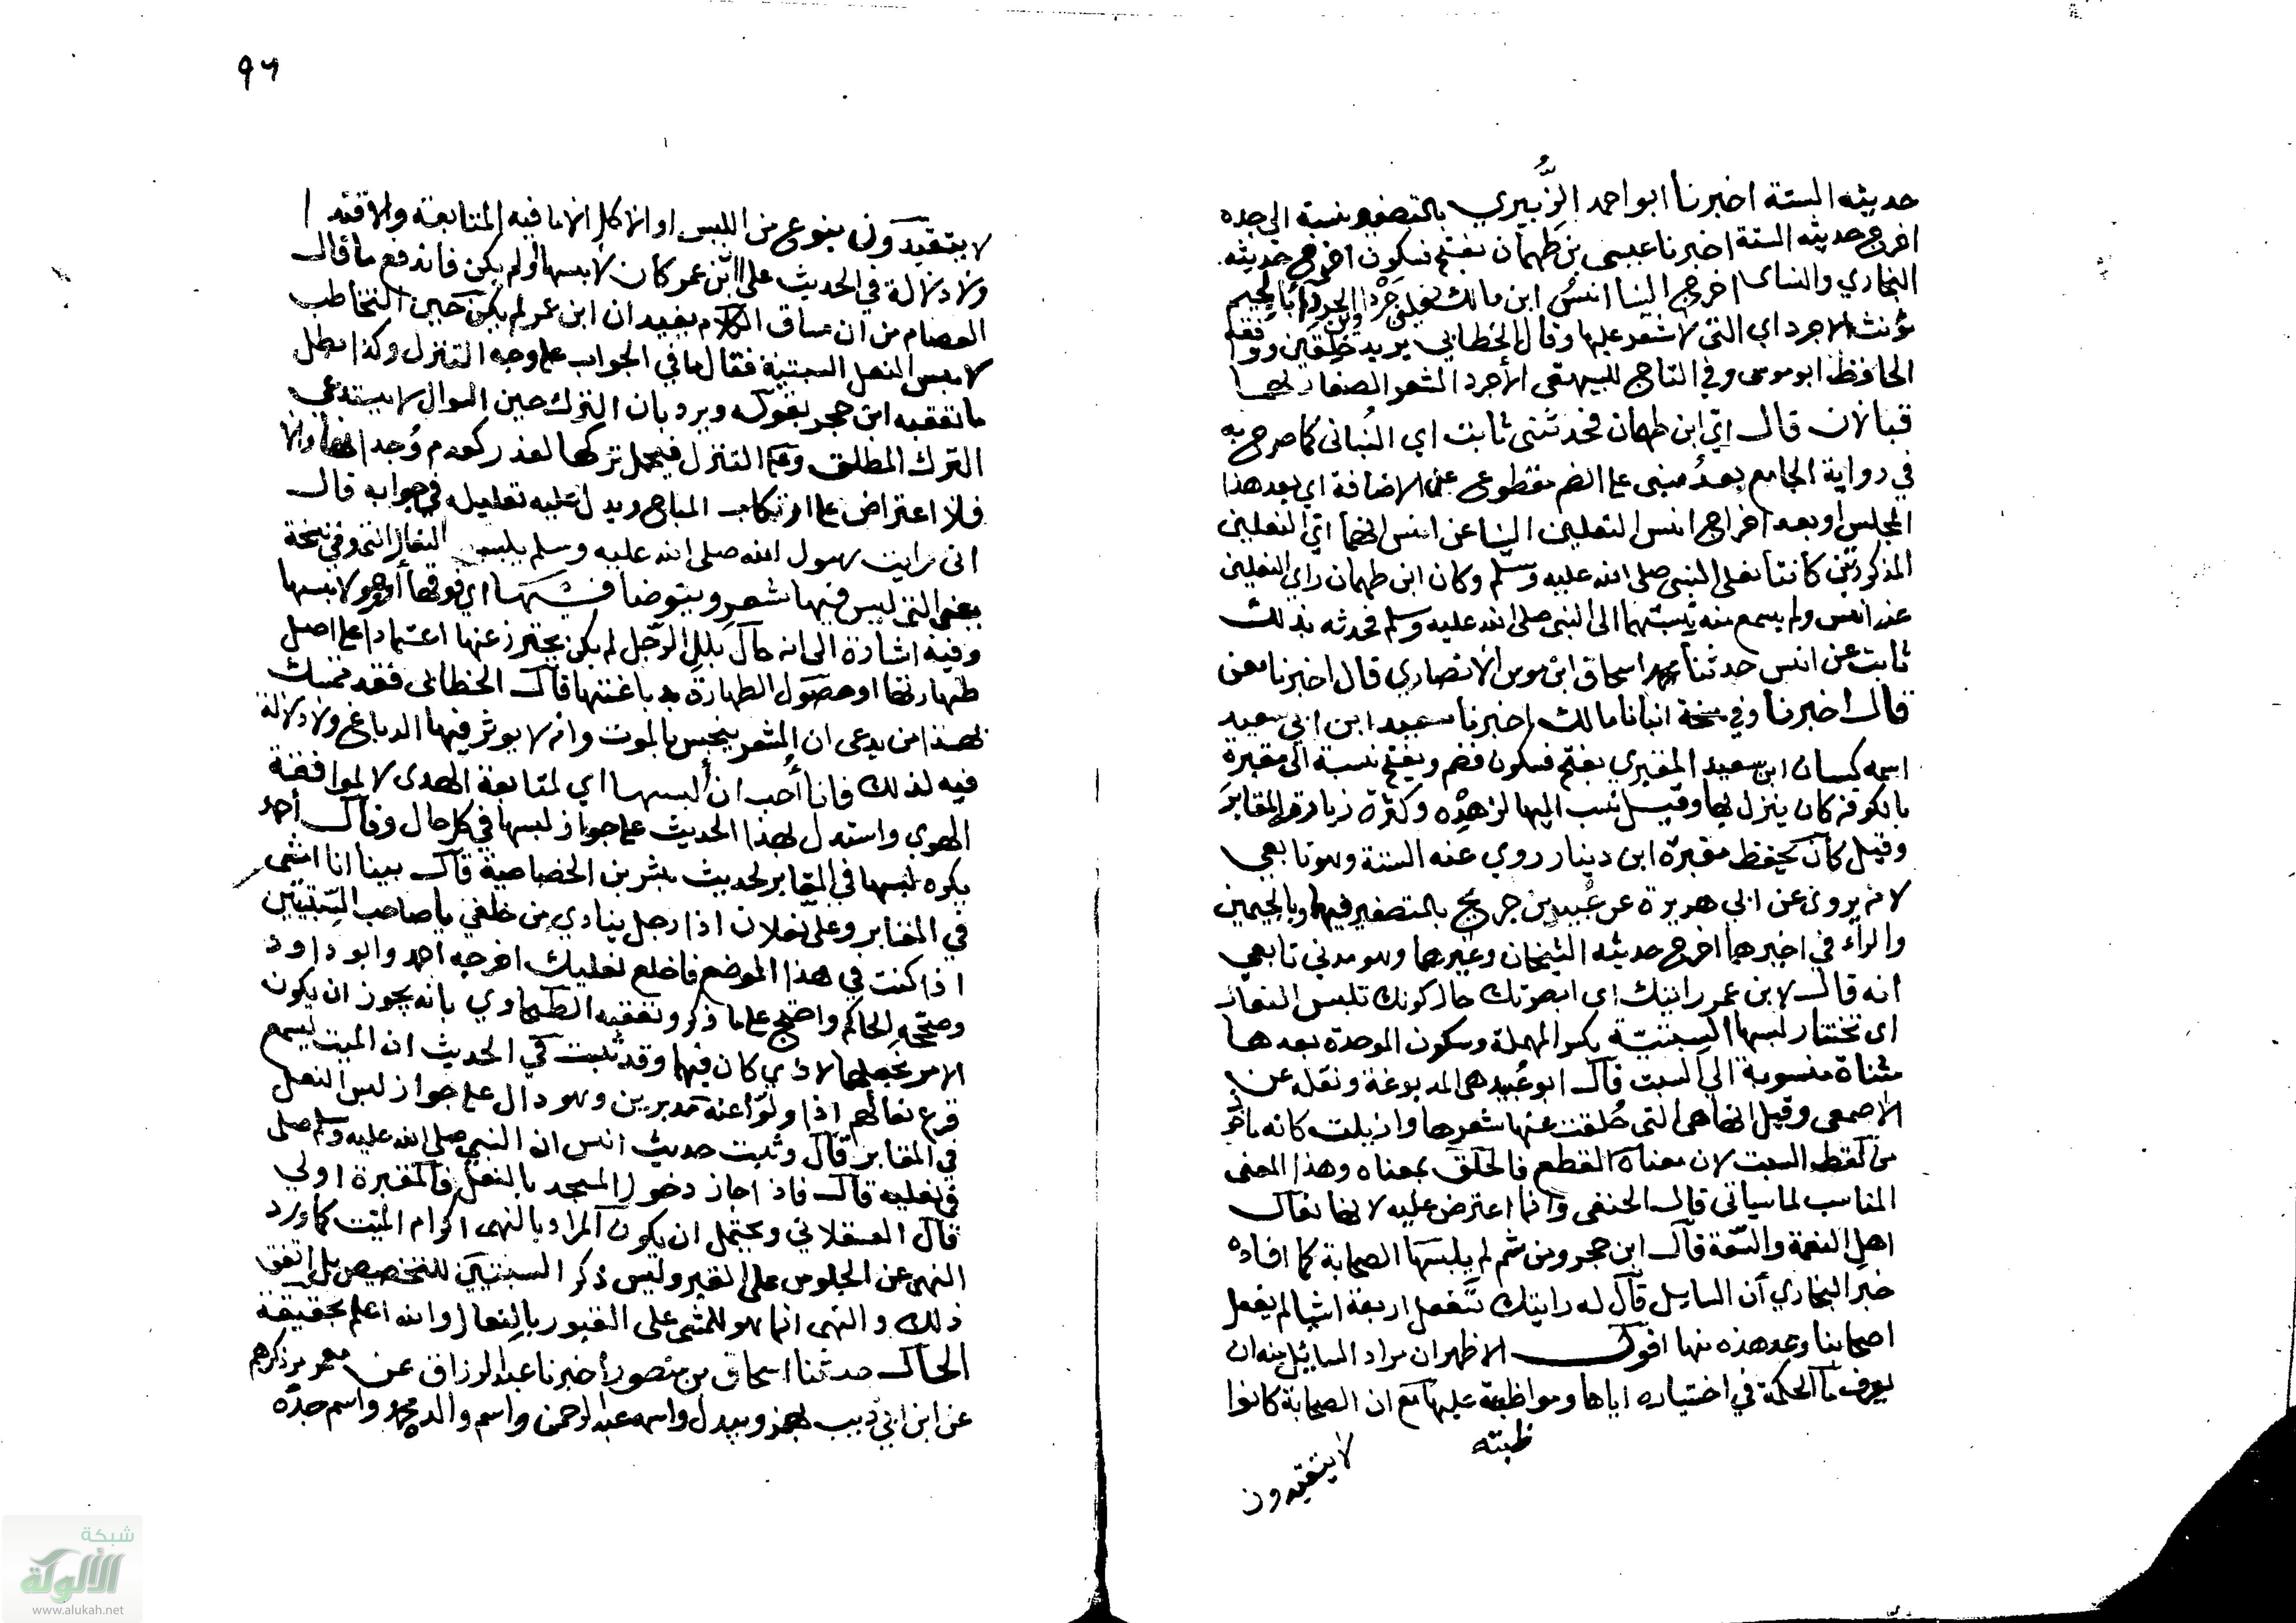 حديثه الستة اخبرنا ابو احمد الزُّبيري بالتصغير نسبة الى جده
اخرج حديثه الستة اخبرنا عيسى بن طهمان بفتح فسكون اخرج حديثه
البخاري والنساى اخرج الينا انسُ ابن مالك نعلين جَرْداوين
مؤنث الاجرد اي التى لا شعر عليها وقال الخطابي يريد خلِقَين ووافقه
الحافظ ابو موسى وفي التاج للبيهقى الأجرد الشعر الصغار لهما
قبالان قال اي ابن طهمان فحدثنى ثابت اي البُنانى كما صرح به
في رواية الجامع بعدُ مبنى على الضم مقطوع عن الاضافة اي بعد هذا
المجلس او بعد اخراج انس النعلين الينا عن انس انهما اي النعلين
المذكورتين كانتا نعلى النبى صلى الله عليه وسلم وكان ابن طهمان راي النعلين
عند انس ولم يسمع منه نسبتهما الى النبى صلى الله عليه وسلم فحدثه بذلك
ثابت عن انس حدثنا اسحاق ابن موسى الانصاري قال اخبرنا معن
قال اخبرنا وفي نسخة انبانا مالك اخبرنا سعيد ابن ابي سعيد
اسمه كيسان ابن سعيد المقبري بفتح فسكون فضم وبفتح نسبة الى مقبرة
بالكوفة كان ينزل بها وقيل نسب اليها لزهده وكثرة زيارة المقابر
وقيل كان يحفظ مقبرة ابن دينار روي عنه الستة وهو تابعي
لانه يروى عن ابي هريرة عن عُبيد بن جريج بالتصغير فيهما وبالجيمين
والراء في اخيرهما اخرج حديثه الشيخان وغيرهما وهو مدني تابعي
انه قال لابن عمر رايتك اى ابصرتك حال كونك تلبس النعال
اى تختار لبسها السبتيّة بكسر المهملة وسكون الموحدة بعدها
مثناة منسوبة الى السبت قال ابو عُبيد هى المدبوغة ونقله عن
الاصمعى وقيل انها هى التى حُلقت عنها شعرها وازيلت كانه ماخوذ
من لفظ السبت لان معناه القطع فالحلق بمعناه وهذا المعنى
المناسب لما سياتى قال الحنفى وانما اعترض عليه لانها نعال
اهل النعمة والسّعة قال ابن حجر ومن ثم لم يلبسها الصحابة كما افاده
خبر البخاري أن السايل قال له رايتك تفعل اربعة اشيا لم يفعلها
اصحابنا وعد هذه منها اقول الاظهر ان مراد السائل منه ان
يعرف ما الحكمة في اختياره اياها ومواظبة عليها مع ان الصحابة كانوا
ظبته
لا يتقيدون
٩٦
لا يتقيدون بنوع من اللبس او الاكل الا ما فيه المتابعة والاقتدا
ولا دلالة في الحديث على ابن عمر كان لابسها او لم يكن فاندفع ما قال
العصام من ان مساق الكلام يفيد ان ابن عمر لم يكن حين التخاطب
لابس النعل السبتية فقال ما في الجواب على وجه التنزل وكذا بطل
ما تعقبه ابن حجر بقوله ويرد بان الترك حين السوال لا يستدعي
الترك المطلق وعلى التنزل فيحمل تركها لعذر كعدم وُجدانها والا
فلا اعتراض على ارتكاب المباح ويدل عليه تعليله في جوابه قال
انى رايت رسول الله صلى الله عليه وسلم يلبس النعال التي وفي نسخة
يعنى التى ليس فيها شعر ويتوضا فيها اي فوقها او وهو لابسها
وفيه اشارة الى انه حال بلل الرّجل لم يكن يحترز عنها اعتمادا على اصل
طهارتها او حصول الطهارة بدباغتها قال الخطابى فقد تمسك
بهذا من يدعى ان الشعر ينجس بالموت وانه لا يوثر فيها الدباغ ولا دلالة
فيه لذلك فانا أُحب ان ألبسها اي لمتابعة الهدى لا لموافقة
الهوى واستدل بهذا الحديث على جواز لبسها في كل حال وقال أحمد
يكره لبسها في المقابر لحديث بشر بن الخصاصية قال بينا انا امشى
في المقابر وعلىّ نعلان اذا رجل ينادي من خلفي يا صاحب السّبتيّتين
اذا كنت في هذا الموضع فاخلع نعليك اخرجه احمد وابو داود
وصححه الحاكم واحتج على ما ذكر وتعقبه الطحاوي بانه يجوز ان يكون
الامر بخلعهما لاذى كان فيها وقد ثبت في الحديث ان الميت ليسمع
قرع نعالهم اذا ولّوا عنه مدبرين وهو دال على جواز لبس النعل
في المقابر قال وثبت حديث انس ان النبي صلى الله عليه وسلم صلى
في نعليه قال فاذا جاز دخول المسجد بالنعل فالمقبرة اولى
قال العسقلاني ويحتمل ان يكون المراد بالنهى اكرام الميّت كما ورد
النهى عن الجلوس على القبر وليس ذكر السبتيتين للتخصيص بل اتفق
ذلك والنهى انما هو للمشى على القبور بالنعال والله اعلم بحقيقة
الحال حدثنا اسحاق بن منصور أخبرنا عبد الرزاق عن معمر مر ذكرهم
عن ابن ابي ذيب بهمز ويبدل واسمه عبد الرحمن واسم والده محمد واسم جدّه
شبكة
الألوكة
www.alukah.net